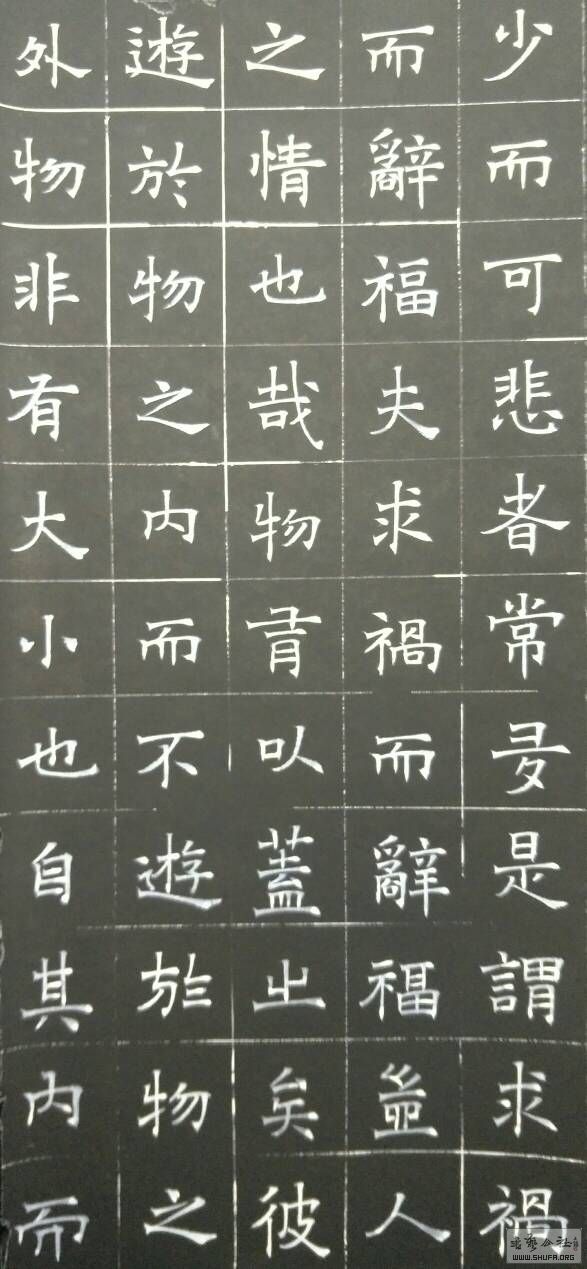 少而可悲者常多是謂求禍
而辭福夫求禍而辭福豈人
之情也哉物有以蓋之矣彼
遊於物之内而不遊於物之
外物非有大小也自其内而
WWW.SHUFA.ORG